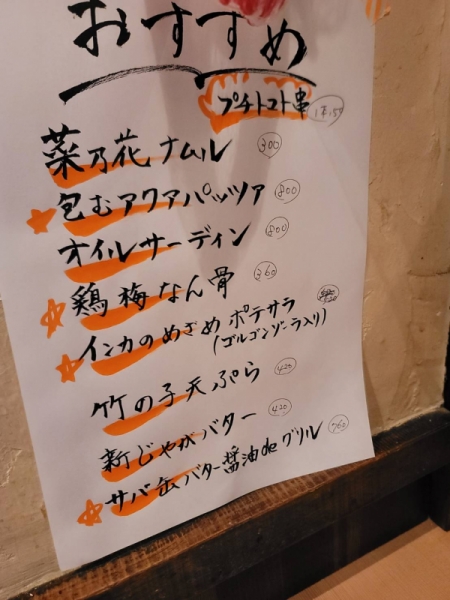 おすすめ
プチトマト串
菜乃花ナムル 300
包むアクアパッツァ 800
オイルサーディン 800
鶏梅なん骨 360
インカのめざめポテサラ
(ゴルゴンゾーラ入り)
竹の子天ぷら 420
新じゃがバター 420
サバ缶バター醤油deグリル 760